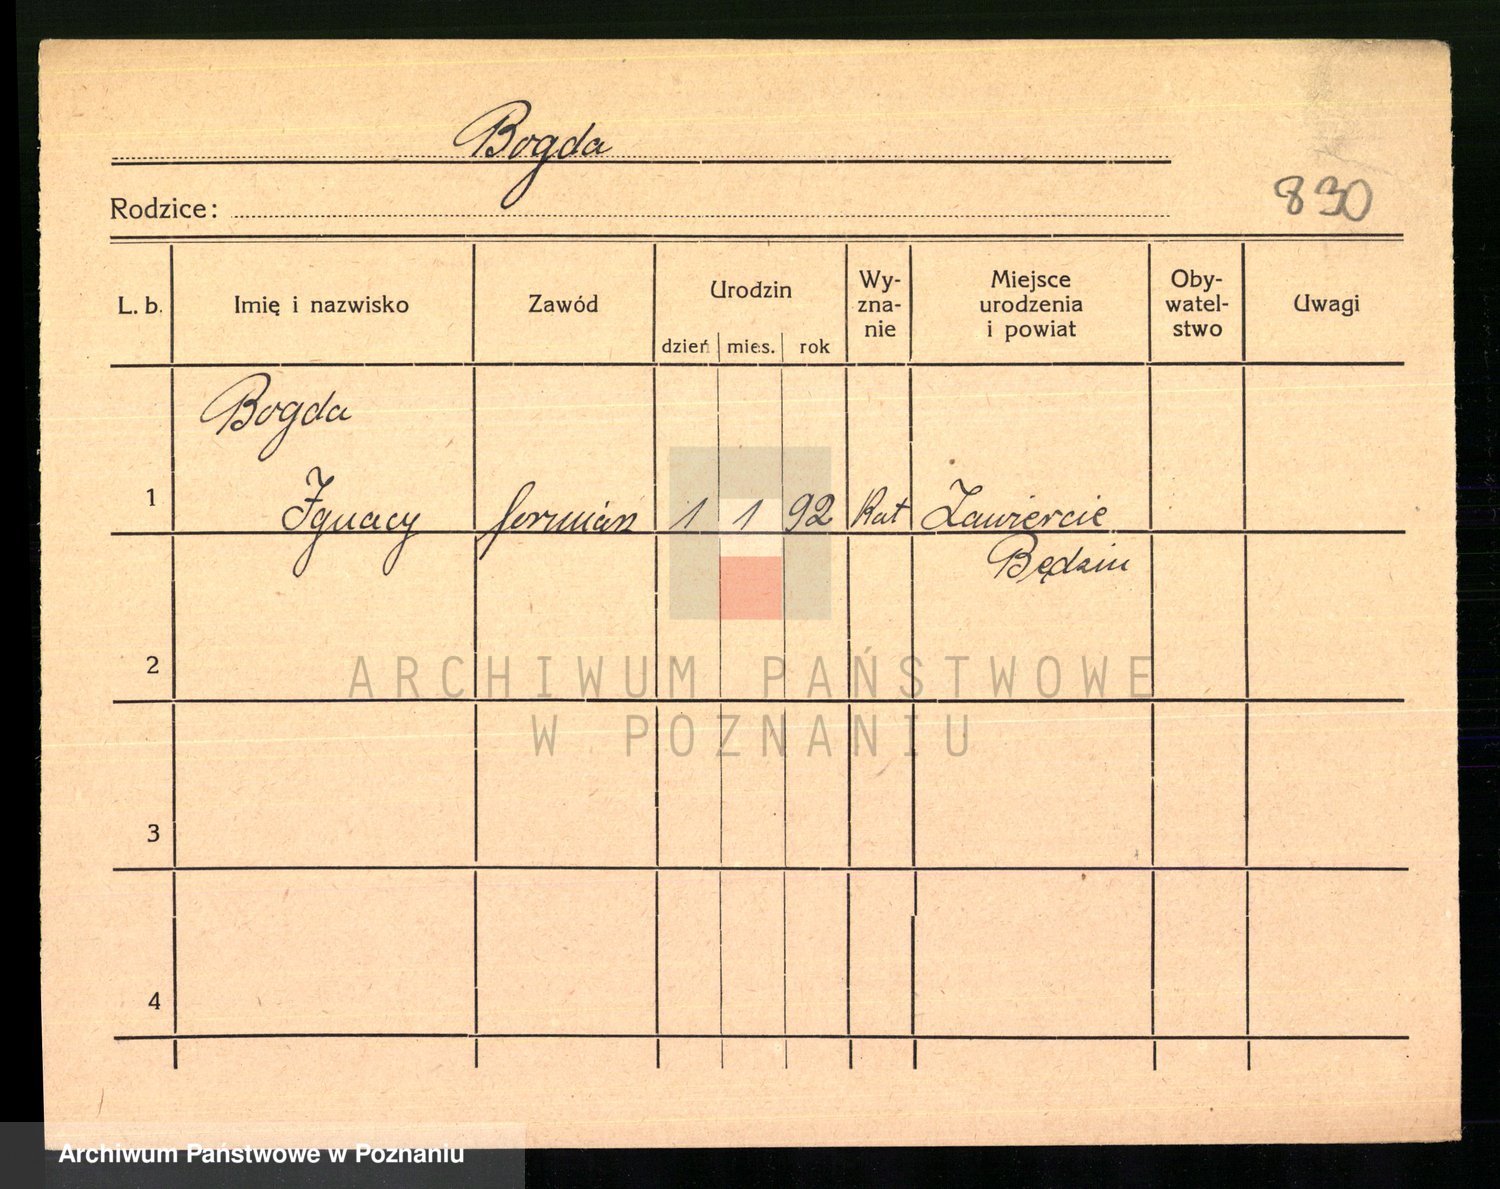 Bogda
Rodzice:
830
L. b. Imię i nazwisko Zawód Urodzin dzień mies. rok Wy-zna-nie Miejsce urodzenia i powiat Oby-watel-stwo Uwagi
Bogda
1 Ignacy formiarz 1 1 92 Kat Zawiercie
Będzin
2
ARCHIWUM PAŃSTWOWE
W POZNANIU
3
4
Archiwum Państwowe w Poznaniu